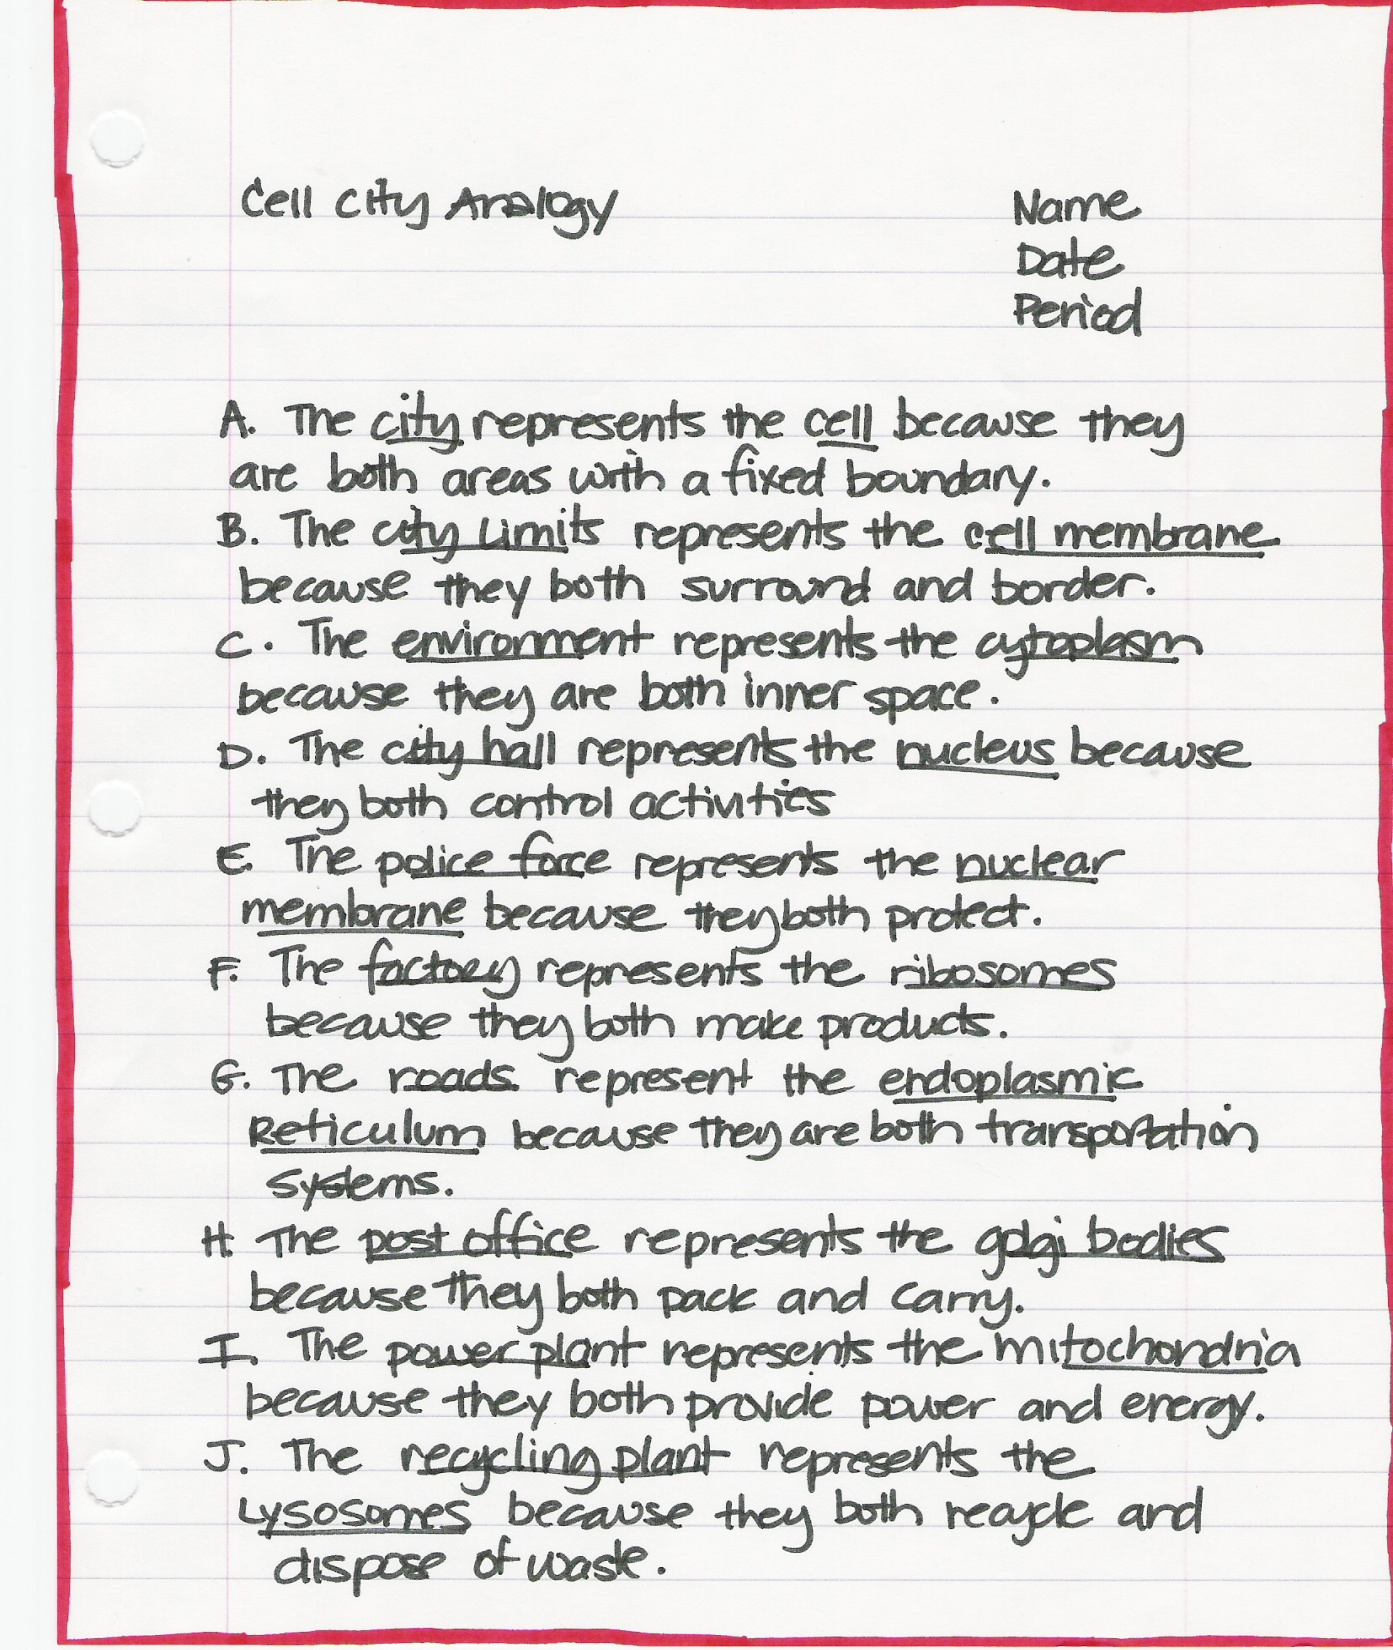 Cell City Analogy
Name
Date
Period
A. The city represents the cell because they
are both areas with a fixed boundary.
B. The city limits represents the cell membrane
because they both surround and border.
C. The environment represents the cytoplasm
because they are both inner space.
D. The city hall represents the nucleus because
they both control activities
E. The police force represents the nuclear
membrane because they both protect.
F. The factory represents the ribosomes
because they both make products.
G. The roads represent the endoplasmic
Reticulum because they are both transportation
Systems.
H. The post office represents the golgi bodies
because they both pack and carry.
I. The power plant represents the mitochondria
because they both provide power and energy.
J. The recycling plant represents the
Lysosomes because they both recycle and
dispose of waste.